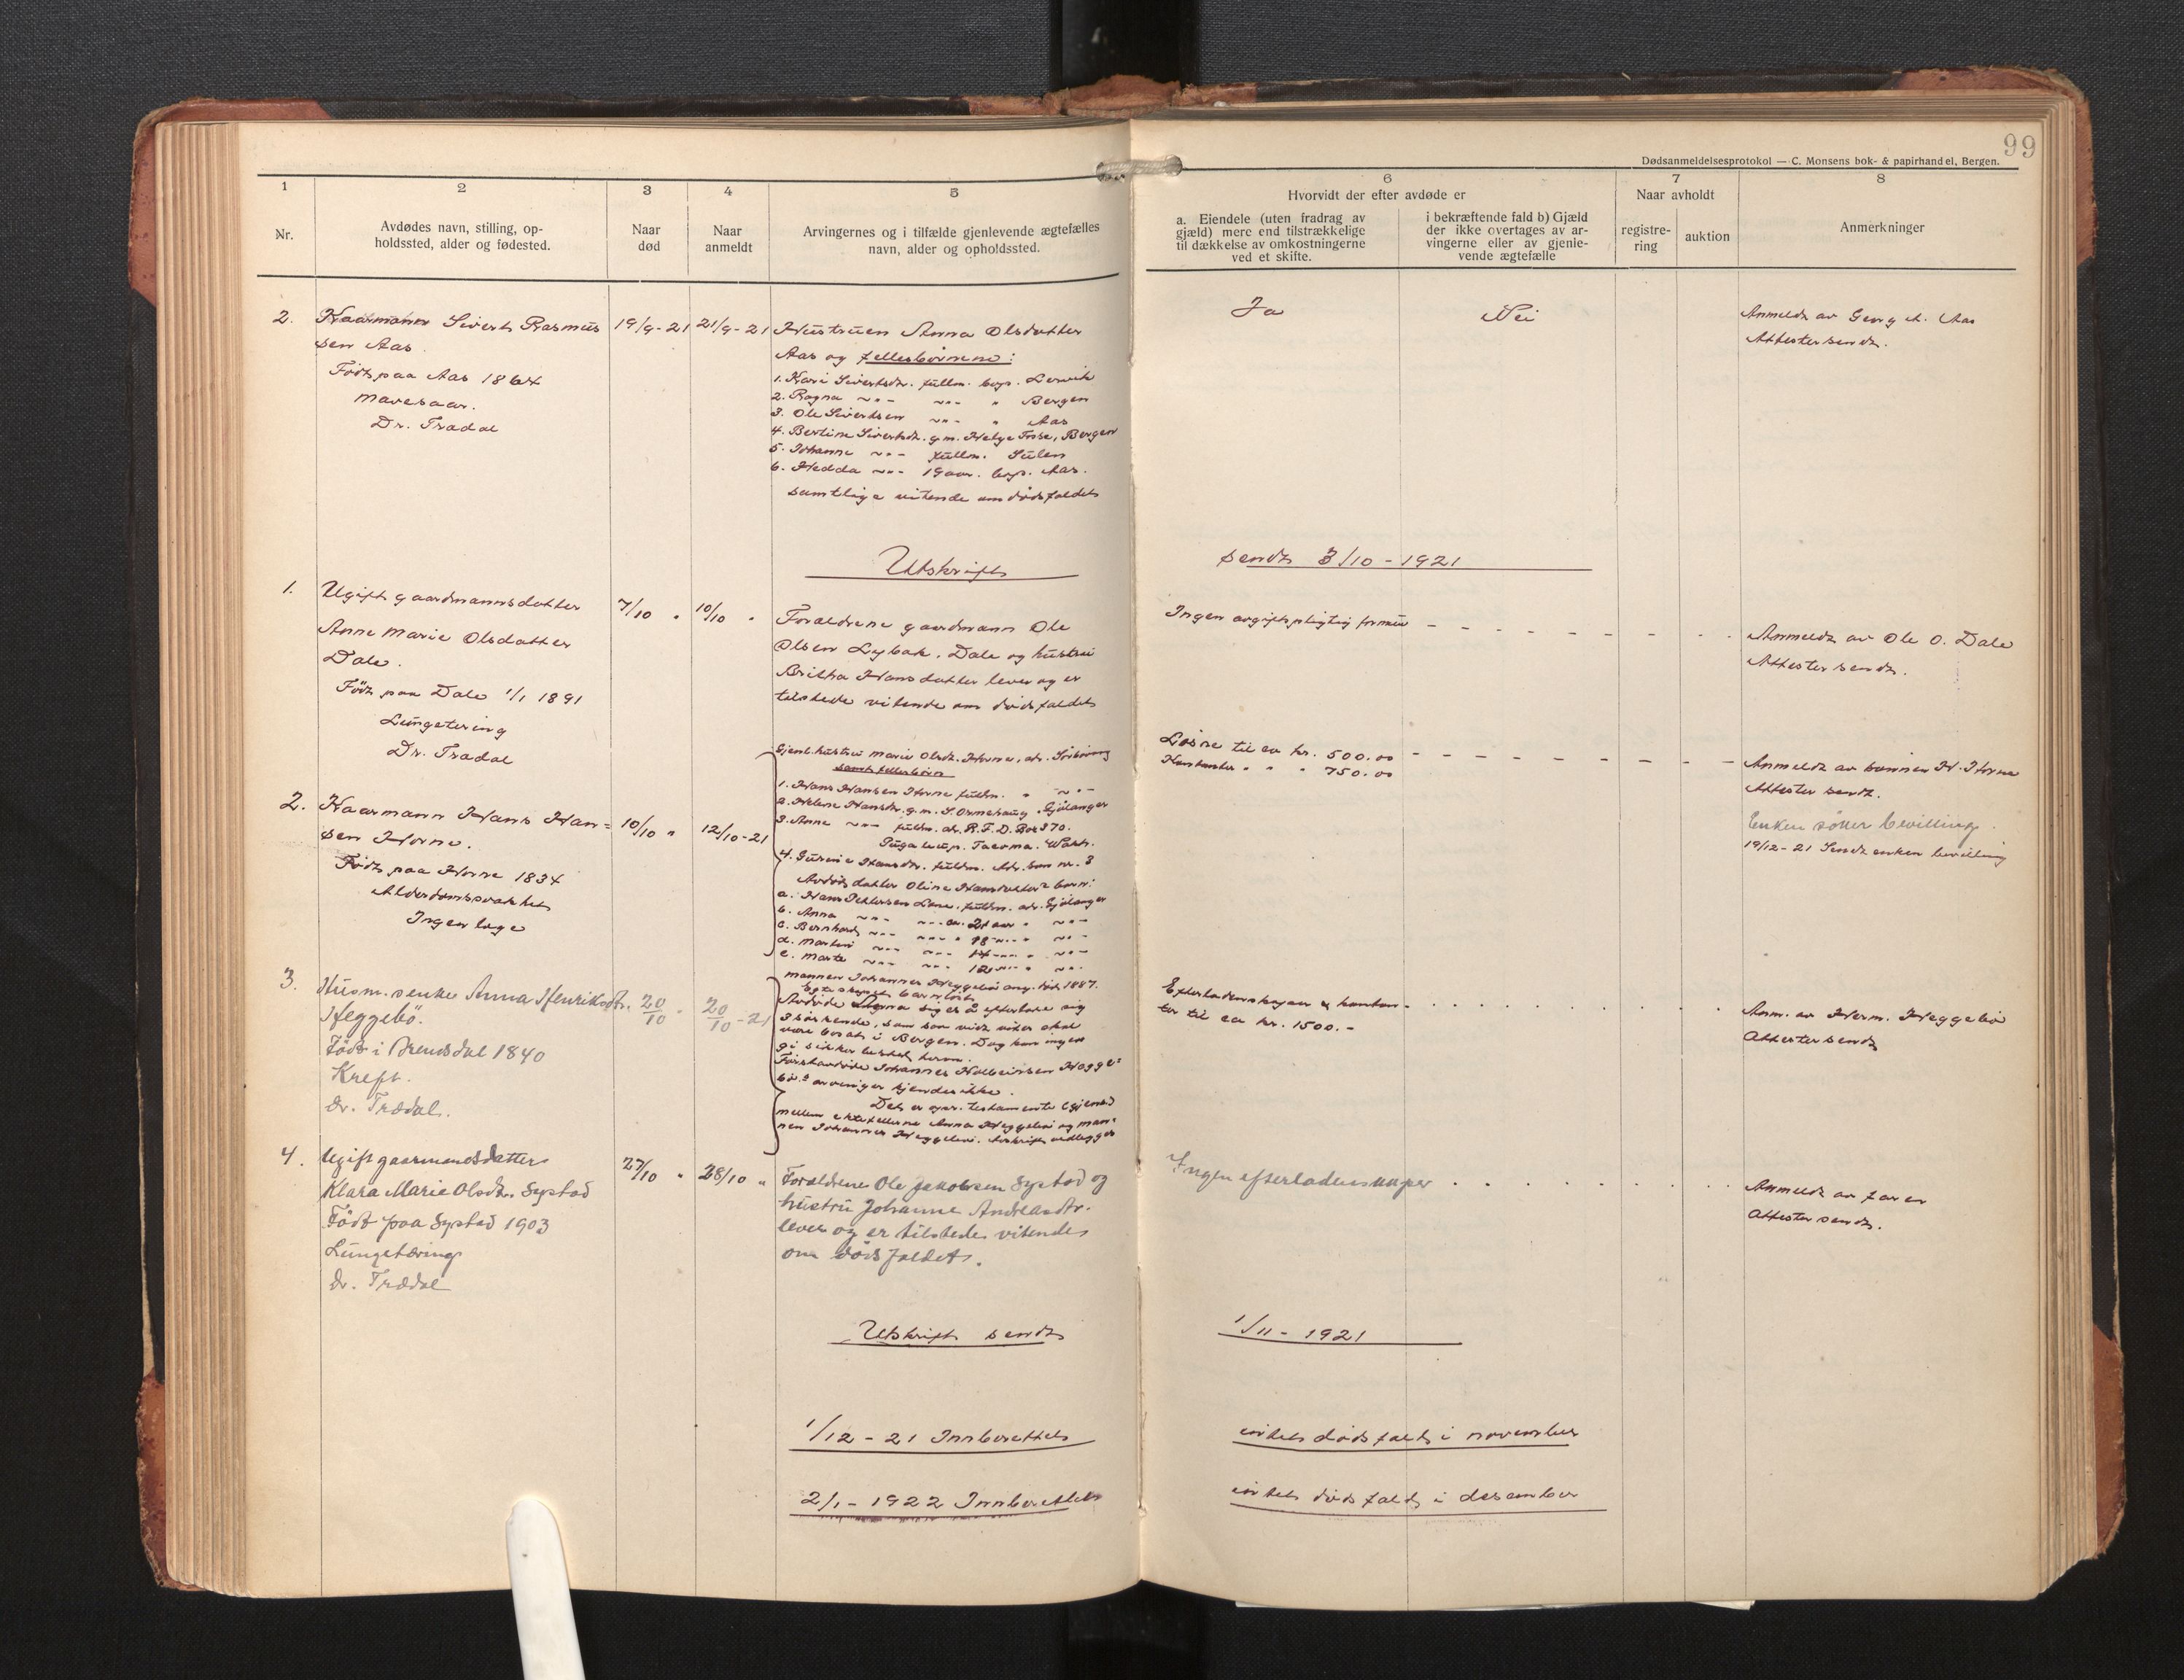 99
Dødsanmeldelsesprotokol — C. Monsens bok- & papirhandel, Bergen.
1
Nr.
2
Avdødes navn, stilling, op-
holdssted, alder og fødested.
3
Naar
død
4
Naar
anmeldt
5
Arvingernes og i tilfælde gjenlevende ægtefælles
navn, alder og opholdssted.
6
Hvorvidt der efter avdøde er
a. Eiendele (uten fradrag av
gjæld) mere end tilstrækkelige
til dækkelse av omkostningerne
ved et skifte.
i bekræftende fald b) Gjæld
der ikke overtages av ar-
vingerne eller av gjenle-
vende ægtefælle
7
Naar avholdt
registre-
ring
auktion
8
Anmerkninger
2.
Kaarmann Sivert Rasmus
sen Aas.
Födt paa Aas 1864
Mavesaar.
Dr. Tradal
19/9-21
21/9-21
Hustruen Anna Olsdatter
Aas og fellesbörnene:
1. Kari Sivertsdr. fullm. bop. Lervik
2. Ragna -"- -"- " Bergen
3. Ole Sivertsen -"- " Aas
4. Bertine Sivertsdr. g.m. Helge Fosse, Bergen
5. Johanne -"- fullm. Sulen
6. Hedda -"- 19 aar. bop. Aas.
samtlige vitende om dödsfaldet
Ja
Nei
Anmeldt av Georg A. Aas
Attester sendt.
Utskrift
sendt 3/10 - 1921
1.
Ugift gaardmannsdatter
Anne Marie Olsdatter
Dale.
Födt paa Dale 1/1 1891
Lungetering
Dr. Tradal
7/10 "
10/10 "
Foraeldrene gaardmann Ole
Olsen Lybak. Dale og hustrui
Britha Hansdatter lever og er
tilstede vitende om dödsfaldet
Ingen avgiftspligtig formue - - - - - - - -
Anmeldt av Ole O. Dale
Attester sendt.
2.
Kaarmann Hans Han=
sen Horne.
Födt paa Horne 1834
Alderdomssvakhet
Ingen lege
10/10 "
12/10-21
Gjenl. hustru Marie Olsdt. Horne, adr.
samt fellesbörn
1. Hans Hansen Horne fuldm. " -"-
2. Helene Hansdr. g.m. S. Ormehaug. Gjölanger
3. Anne -"- fuldm. adr. R.F.D. Box 370.
Tacoma. Wash.
4. Gurine Hansdr. fuldm. Adr. som nr. 3
Avdöd datter Oline Hansdatters barn:
a. Hans Pettersen Lone. fuldm. adr. Gjölanger
b. Anna -"- -"- ca. 21 aar " -"-
c. Bernhard -"- -"- " 18 -"- " -"-
d. Martin -"- -"- 14 -"- " -"-
e. Marte -"- -"- 12 -"- " -"-
Lösöre til ca kr. 500.00 - - - - - - - -
Kontanter " " " 750.00
Anmeldt av sönnen H. Horne
Attester sendt.
Enken söker bevilling.
19/12-21 Sendt enken bevilling
3.
Husm.s enke Anna Henriksdtr.
Heggebö.
Födt i Brendsdal 1840
Kreft.
dr. Trædal.
20/10 "
20/10-21
mannen Johannes Heggebö död 1887.
Egteskapet barnlöst
Avdöde sig er å efterlate sig
3 söskende, som saa vidt vites skal
være bosat i Bergen. Dog kan ingen
gi sikker beskjed herom.
Forhenavdöde Johannes Heggebö
bö's arvinger kjendes ikke.
Det er testamente
mellem ektefellerne Anna Heggebö og man-
nen Johannes Heggebö. Avskrift vedlegges
Efterladenskaper og kontan- . . . . . . . .
ter til ca kr. 1500.-
Anm. av Herm. Heggebö
Attester sendt
4.
Ugift gaarmandsdatter
Klara Marie Olsdtr. Systad
Födt paa Systad 1903
Lungetæring
dr. Trædal
27/10 "
28/10 "
Foraeldrene Ole Jakobsen Systad og
hustru Johanne Andreasdtr.
lever og er tilstede vitende
om dödsfaldet.
Ingen efterladenskaper . . . . . . . .
Anmeldt av faren
Attester sendt.
Utskrift sendt
1/11 - 1921
1/12 - 21 Innberettet
intet dödsfald i november
2/1 - 1922 Innberettet
intet dödsfald i desember